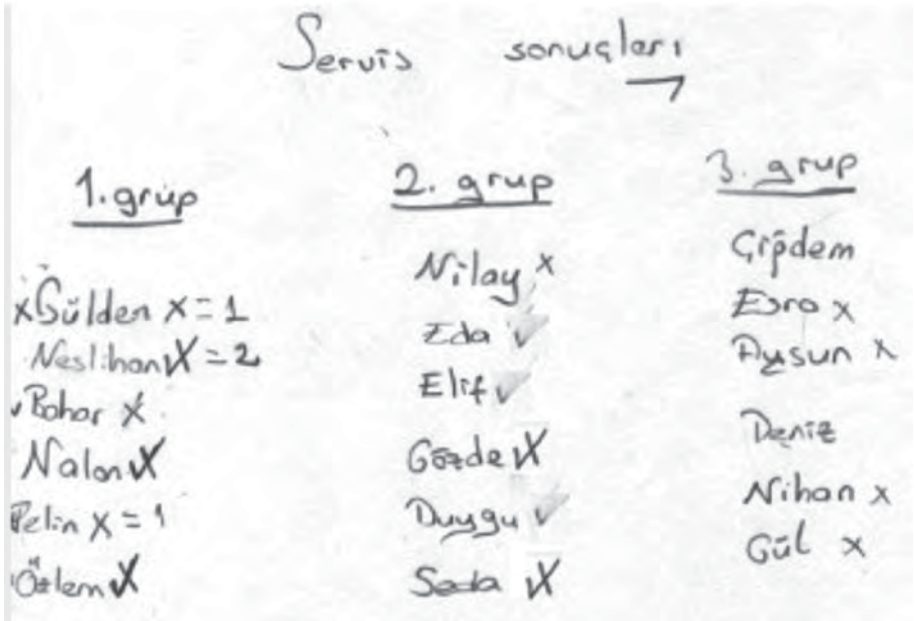 Servis sonuçları
1. grup
xGülden x = 1
Neslihan ✓x = 2
✓Bahar x
Nalan ✓x
Pelin x = 1
Özlem ✓x
2. grup
Nilay x
Eda ✓
Elif ✓
Gözde ✓x
Duygu ✓
Seda ✓x
3. grup
Çiğdem
Esra x
Aysun x
Deniz
Nihan x
Gül x